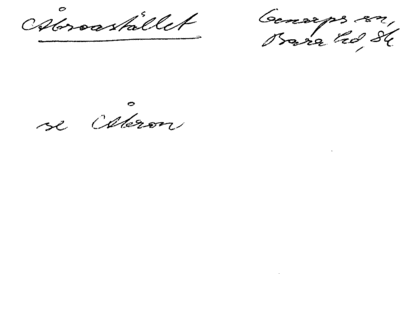 Åbroastället
Genarps sn,
Bara hd, Sk
se Åbron